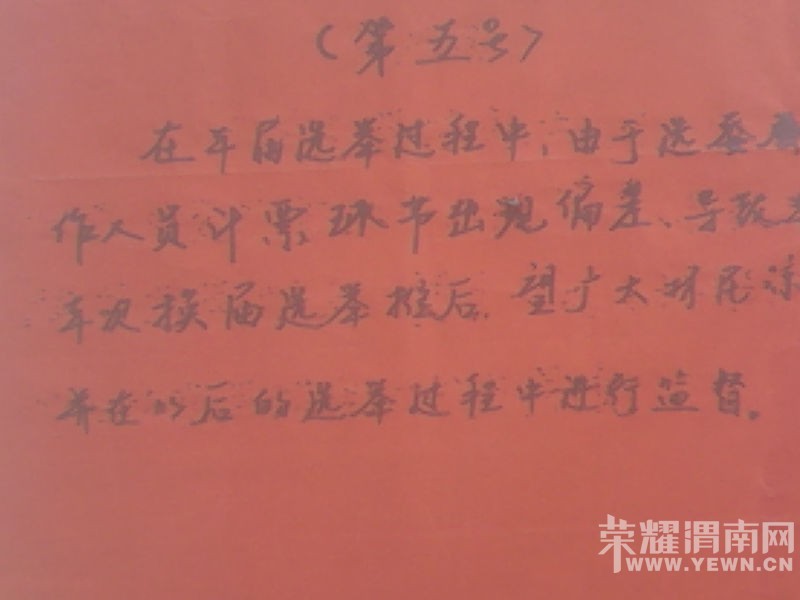 （第五号）
在本届选举过程中，由于选委
作人员计票环节出现偏差、导致
本次换届选举推后，望广大村民谅
并在以后的选举过程中进行监督。
荣耀渭南网
WWW.YEWN.CN